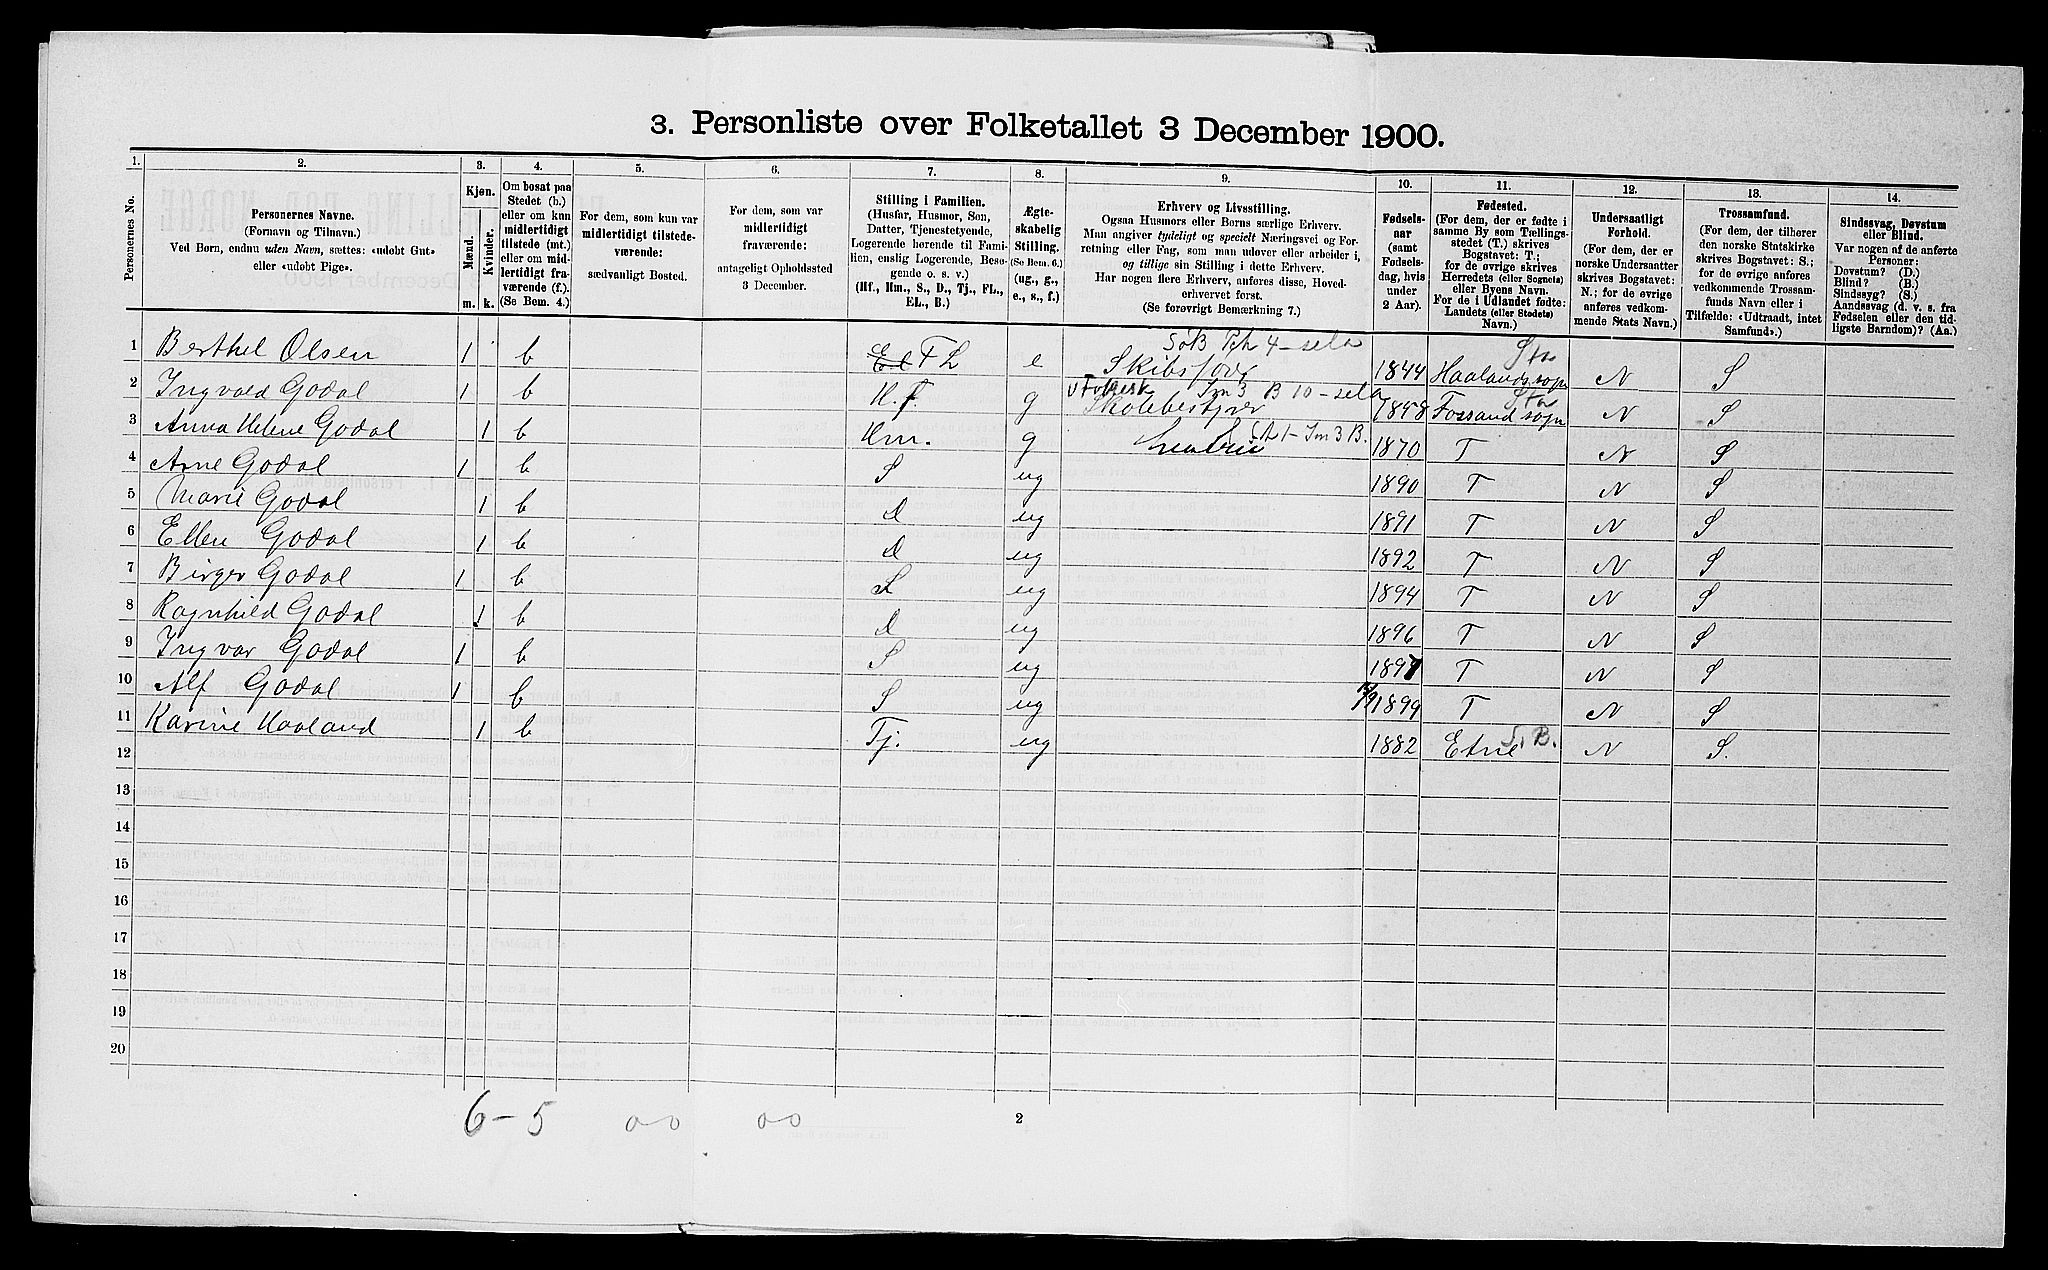 3. Personliste over Folketallet 3 December 1900.
1. 2. 3. 4. 5. 6. 7. 8. 9. 10. 11. 12. 13. 14.
Personernes No.
Personernes Navne.
(Fornavn og Tilnavn.)
Ved Børn, endnu uden Navn, sættes: «udøbt Gut»
eller «udøbt Pige».
Kjøn.
Mænd.
Kvinder.
m. k.
Om bosat paa
Stedet (b.)
eller om kun
midlertidigt
tilstede (mt.)
eller om mid-
lertidigt fra-
værende (f.).
(Se Bem. 4.)
For dem, som kun var
midlertidigt tilstede-
værende:
sædvanligt Bosted.
For dem, som var
midlertidigt
fraværende:
antageligt Opholdssted
3 December.
Stilling i Familien.
(Husfar, Husmor, Søn,
Datter, Tjenestetyende,
Logerende hørende til Fami-
lien, enslig Logerende, Besø-
gende o. s. v.)
(Hf., Hm., S., D., Tj., FL.,
EL., B.)
Ægte-
skabelig
Stilling.
(Se Bem. 6.)
(ug., g.,
e., s., f.)
Erhverv og Livsstilling.
Ogsaa Husmors eller Børns særlige Erhverv.
Man angiver tydeligt og specielt Næringsvei og For-
retning eller Fag, som man udøver eller arbeider i,
og tillige sin Stilling i dette Erhverv.
Har nogen flere Erhverv, anføres disse, Hoved-
erhvervet først.
(Se forøvrigt Bemærkning 7.)
Fødsels-
aar
(samt
Fødsels-
dag, hvis
under
2 Aar).
Fødested.
(For dem, der er fødte i
samme By som Tællings-
stedet (T.) skrives
Bogstavet: T.;
for de øvrige skrives
Herredets (eller Sognets)
eller Byens Navn.
For de i Udlandet fødte:
Landets (eller Stedets)
Navn.)
Undersaatligt
Forhold.
(For dem, der er
norske Undersaatter
skrives Bogstavet:
N.; for de øvrige
anføres vedkom-
mende Stats Navn.)
Trossamfund.
(For dem, der tilhører
den norske Statskirke
skrives Bogstavet: S.;
for de øvrige anføres
vedkommende Trossam-
funds Navn eller i
Tilfælde: «Udtraadt, intet
Samfund».)
Sindssvag, Døvstum
eller Blind.
Var nogen af de anførte
Personer:
Døvstum? (D.)
Blind? (B.)
Sindssyg? (S.)
Aandssvag (d. v. s. fra
Fødselen eller den tid-
ligste Barndom)? (Aa.)
1 Berthel Olsen 1 b El FL e Skibsfører 1844 Haalands sogn N S
2 Ingvald Godal 1 b H.f. g Skolebestyrer 1858 Fossand sogn N S
3 Anna Helene Godal 1 b Hm. g 1870 T N S
4 Arne Godal 1 b S ug 1890 T N S
5 Marie Godal 1 b D ug 1891 T N S
6 Ellen Godal 1 b D ug 1892 T N S
7 Birger Godal 1 b S ug 1894 T N S
8 Ragnhild Godal 1 b D ug 1896 T N S
9 Ingvar Godal 1 b S ug 1897 T N S
10 Alf Godal 1 b S ug 1899 T N S
11 Karine Haaland 1 b Tj. ug 1882 Etne S.B. N S.
12
13
14
15
16
17
18
19
20
6-5 00 00
2